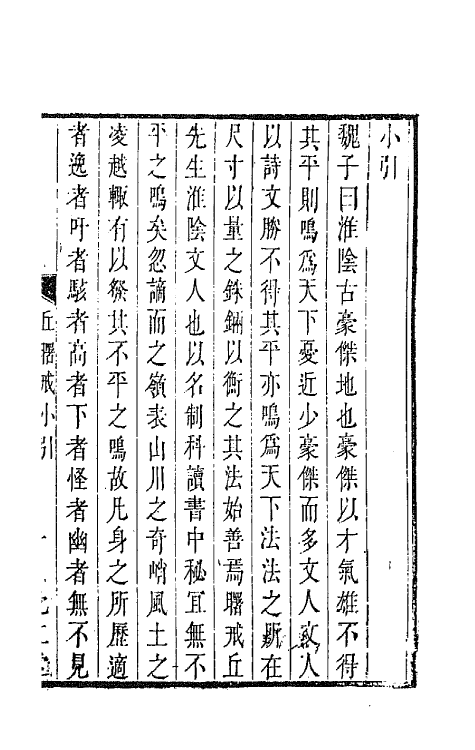 小引
魏子曰淮陰古豪傑地也豪傑以才氣雄不得
其平則鳴爲天下憂近少豪傑而多文人文人
以詩文勝不得其平亦鳴爲天下法法之所在
尺寸以量之銖鎰以衡之其法始善焉曙戒丘
先生淮陰文人也以名制科讀書中秘宜無不
平之鳴矣忽謫而之嶺表山川之奇峭風土之
凌越輙有以發其不平之鳴故凡身之所歷適
者逸者吁者駭者高者下者怪者幽者無不見
丘曙戒小引
一